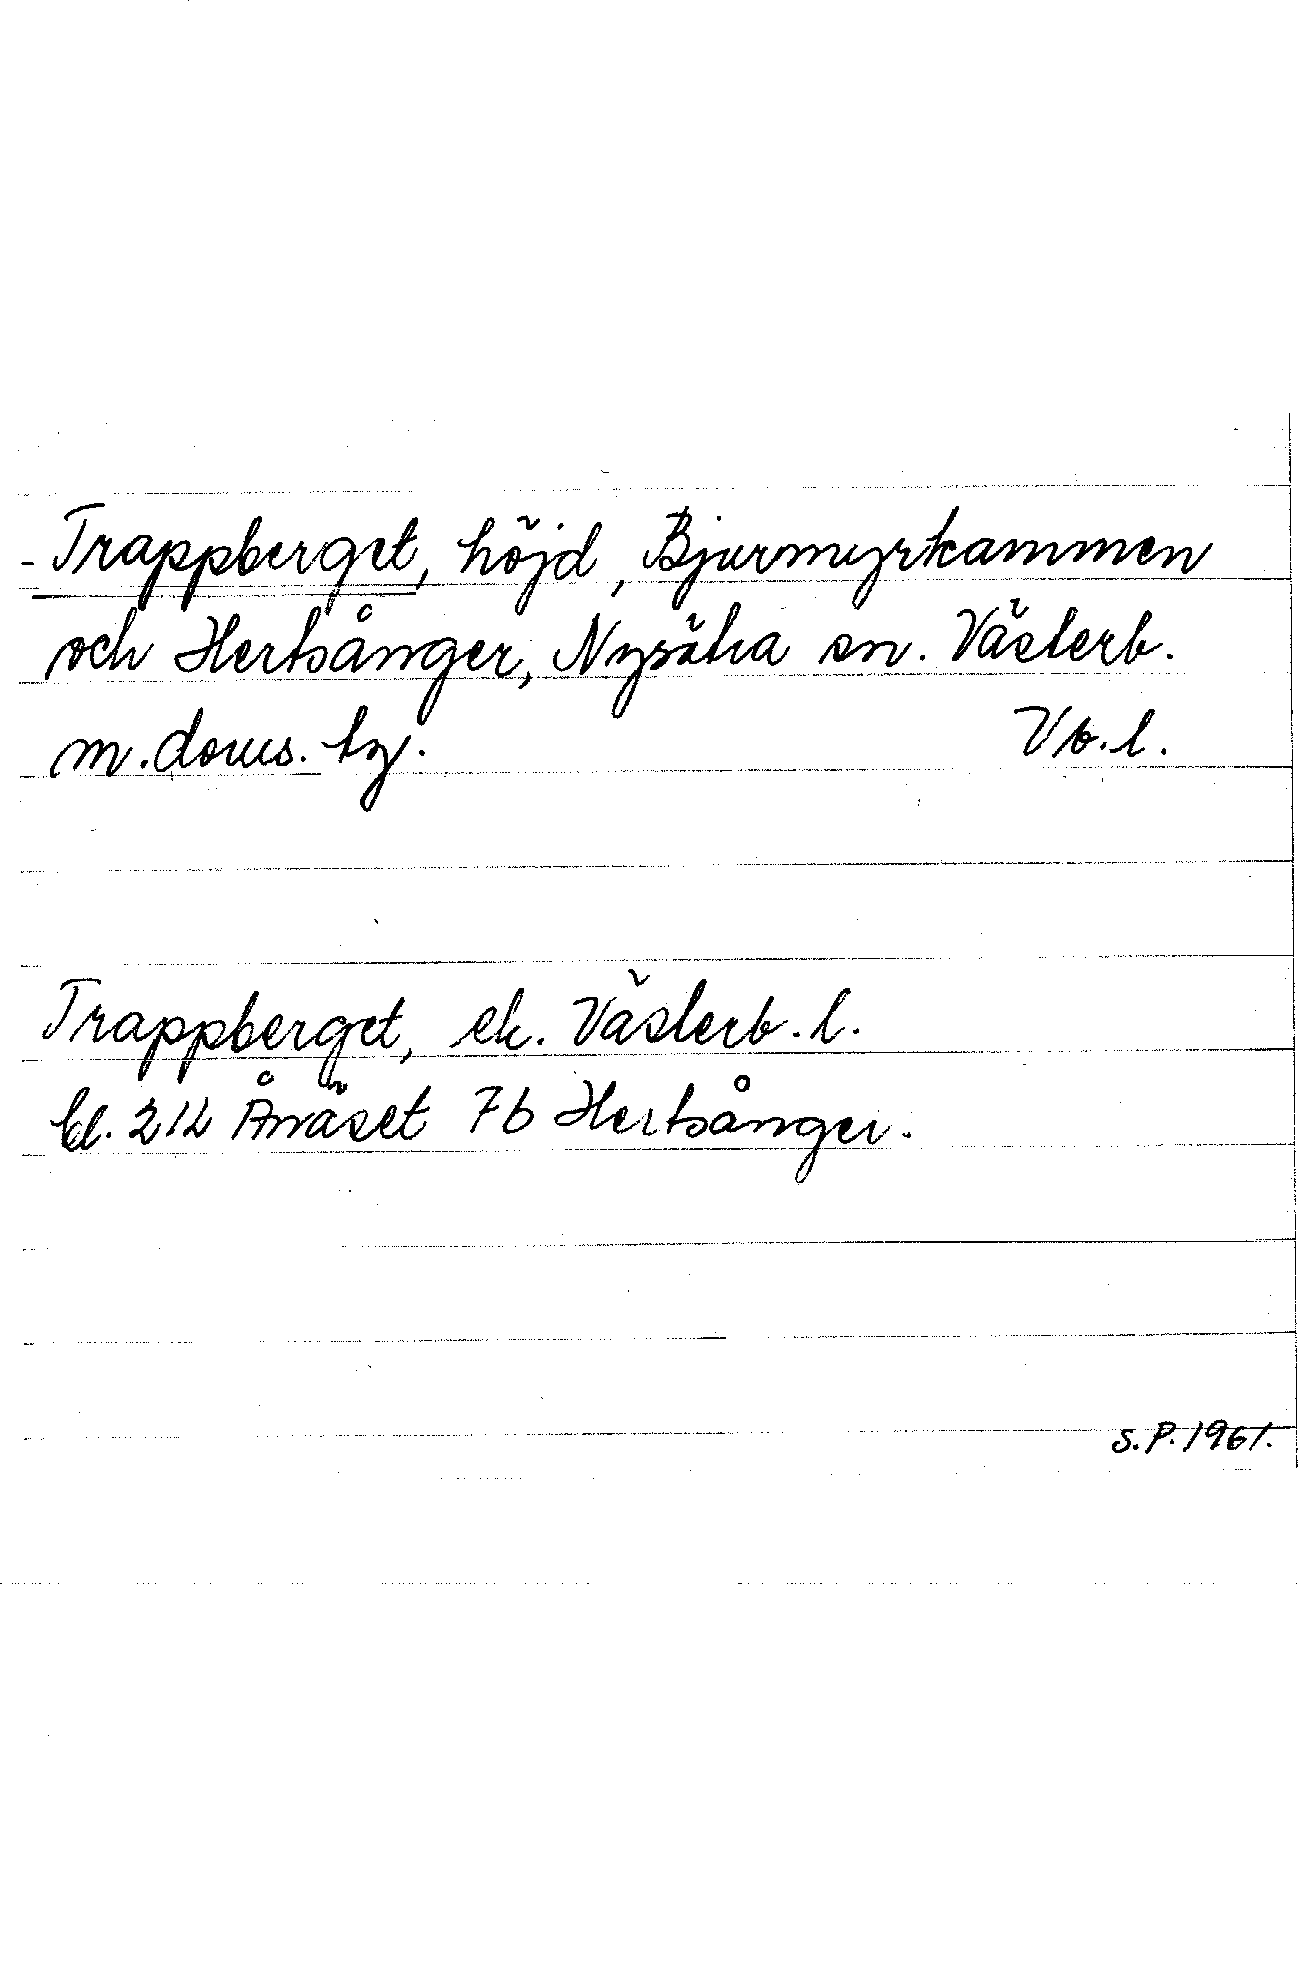 - Trappberget, höjd, Bjurmyrkammen
och Hertsånger, Nysätra sn. Västerb.
m. doms. tg. Vb. l.
Trappberget, ek. Västerb. l.
bl. 212 Ånäset 7b Hertsånger.
S.P. 1961.